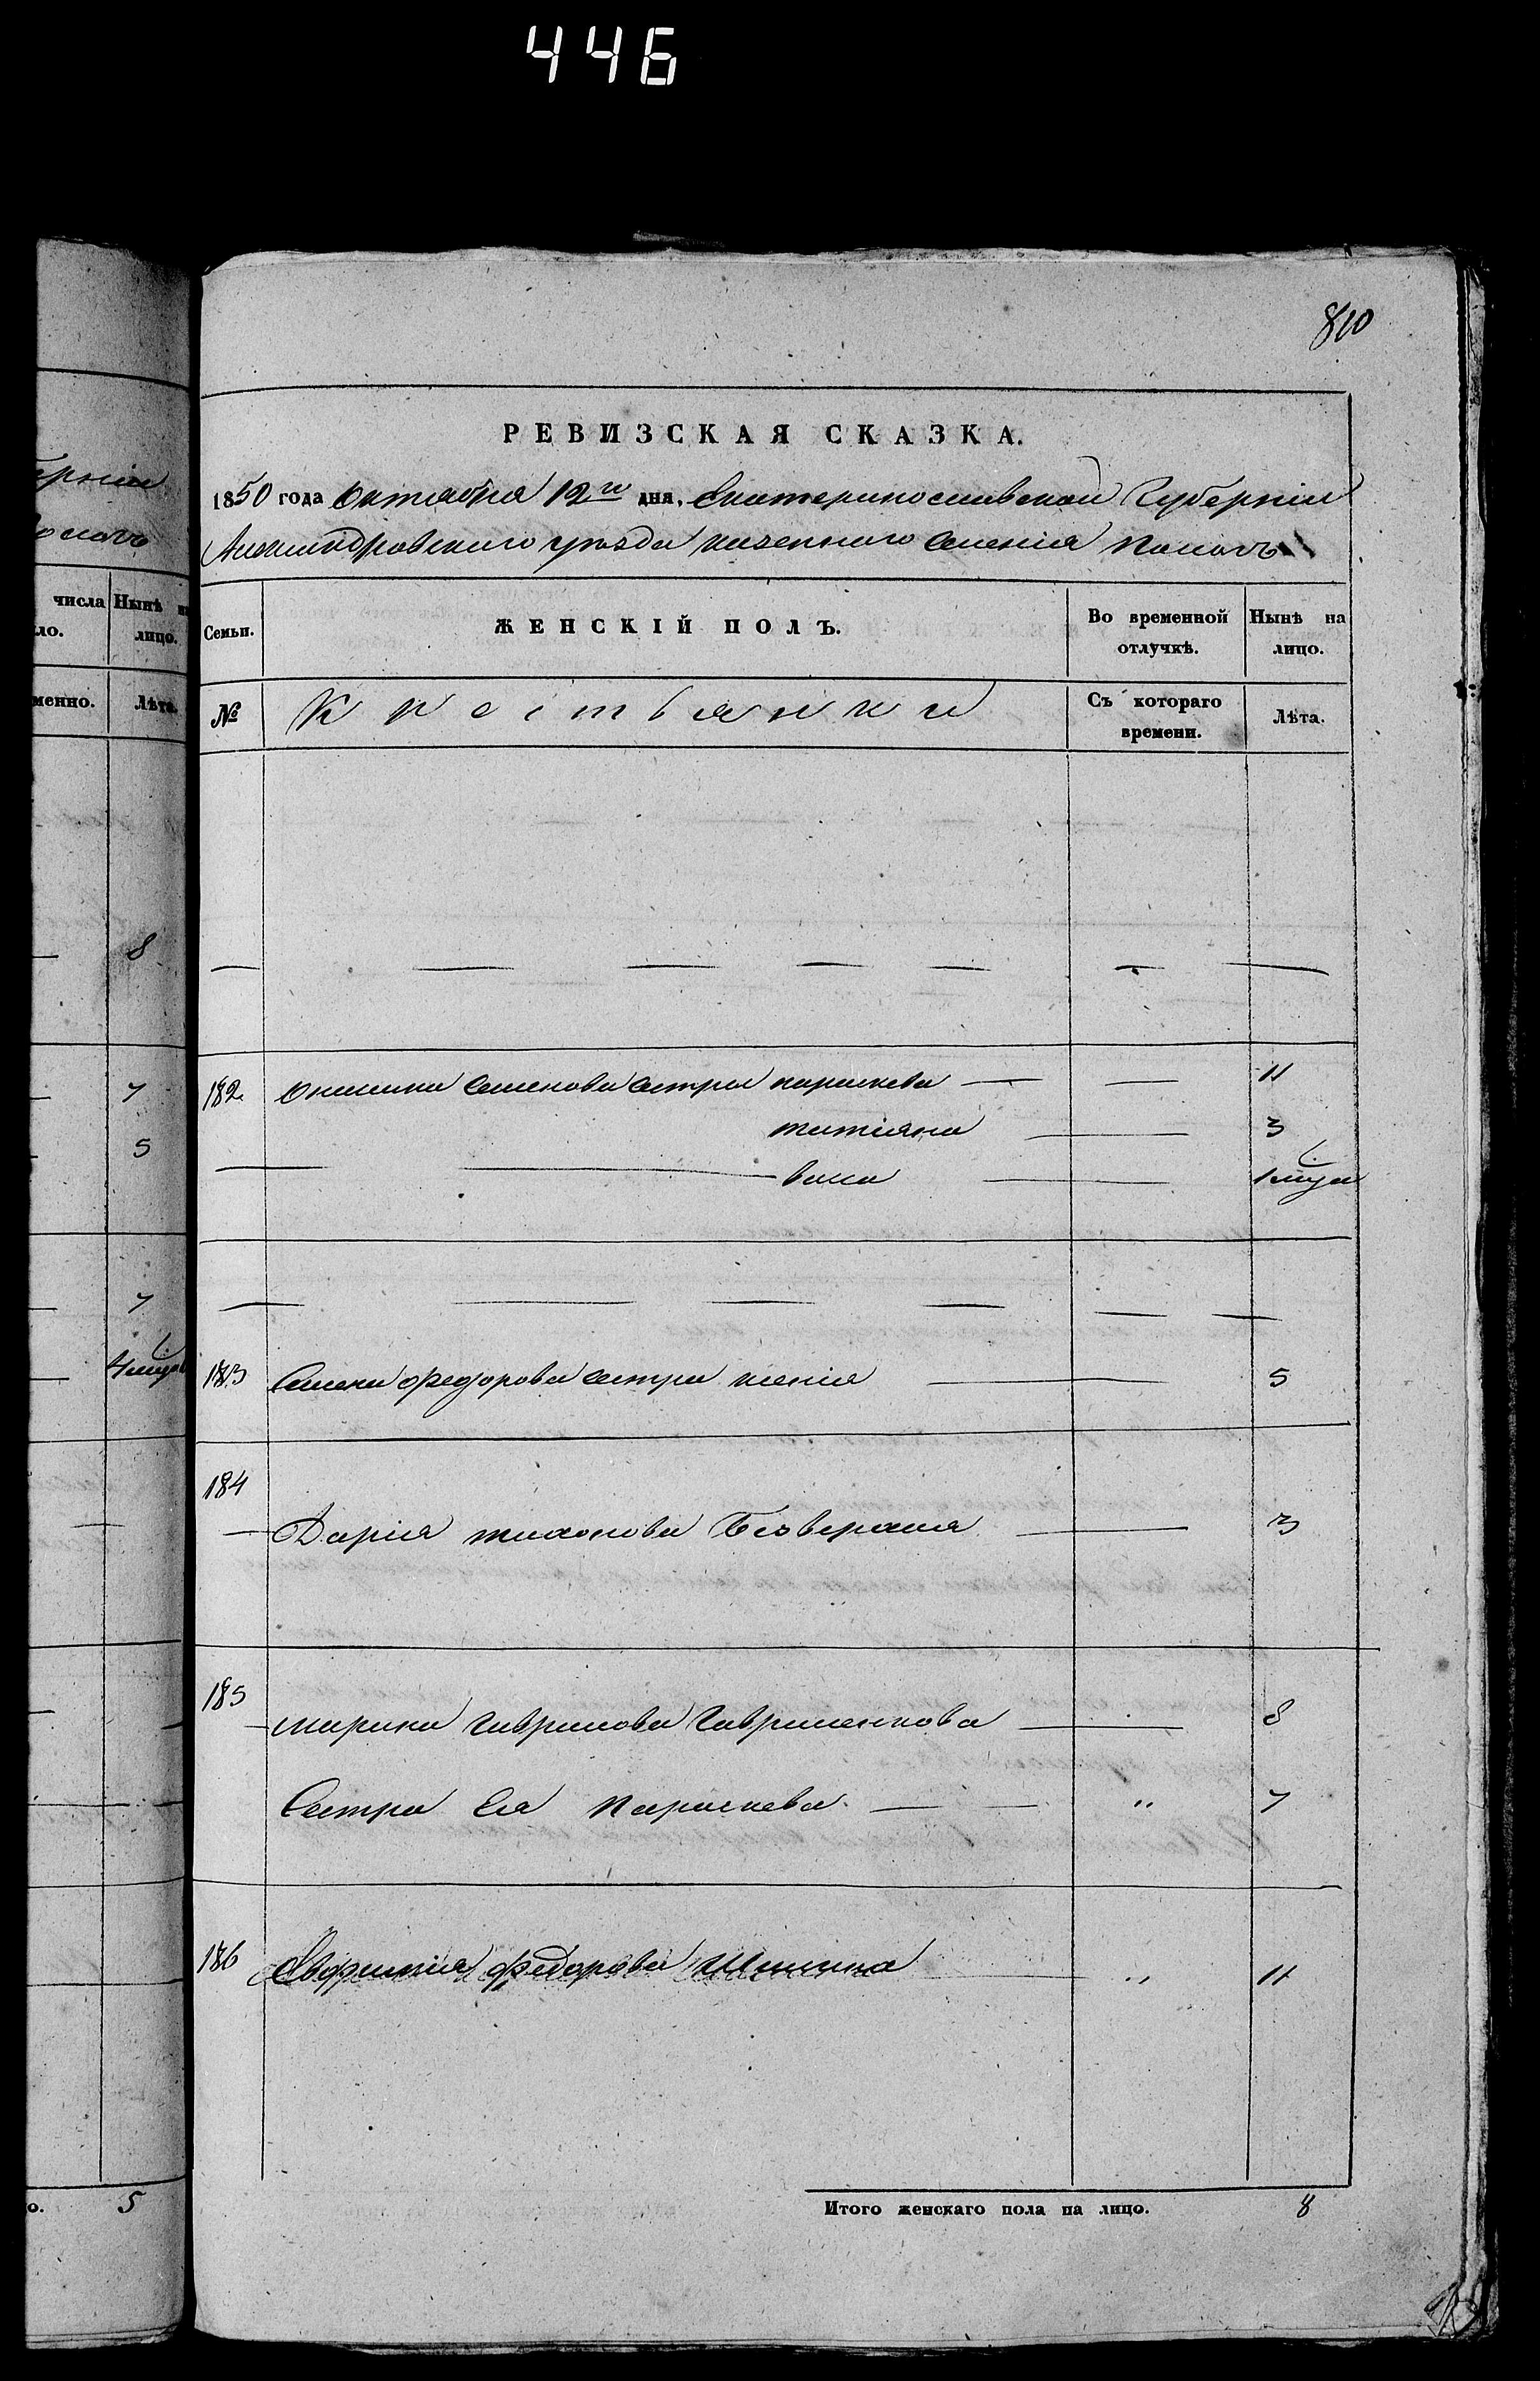 446
810
рніи
Пологъ
числа Нынѣ н
ло. лицо.
менно. Лѣта.
8
7
5
7
4 мѣся
о. 5
РЕВИЗСКАЯ СКАЗКА.
1850 года Октября 12го дня. Екатеринославской Губерніи
Александровского уѣзда казенного селенія Пологъ
Семьи. ЖЕНСКІЙ ПОЛЪ. Во временной отлучкѣ. Нынѣ на лицо.
№ Крестьянки Съ котораго времени. Лѣта.
182 Семенова сестры параскева — — 11
татіяна — 3
васа — 1 мѣся
183 Семена Федорова сестра ксенія — 5
184
Дарія тихонова Безверхая — 3
185
марина гаврилова Гавриленкова — 8
Сестра Ея Параскева — — " 7
186 Евфимія федорова " 11
Итого женскаго пола на лицо. 8